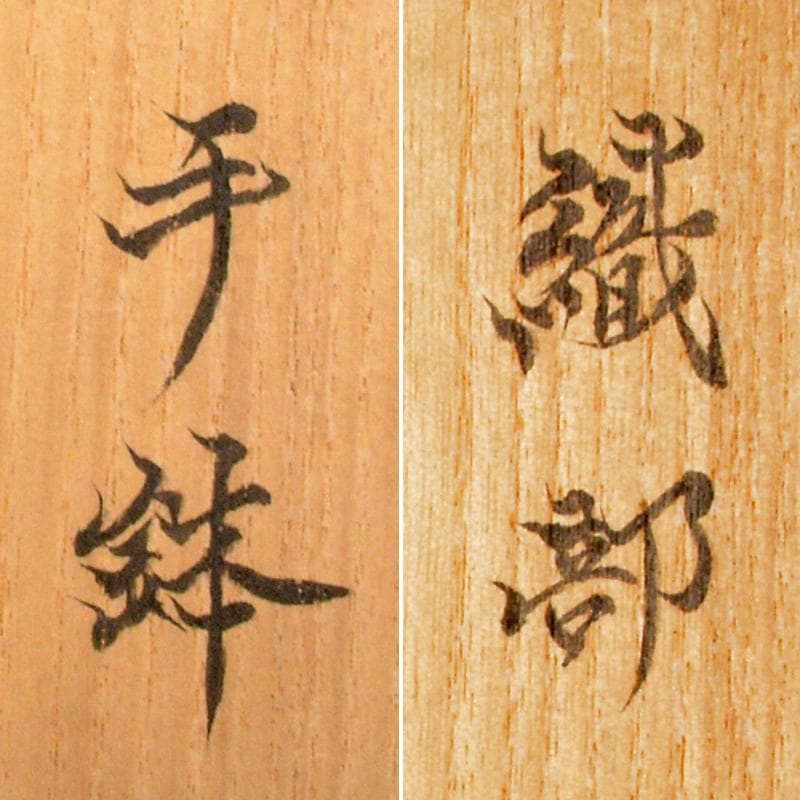 織部
手鉢